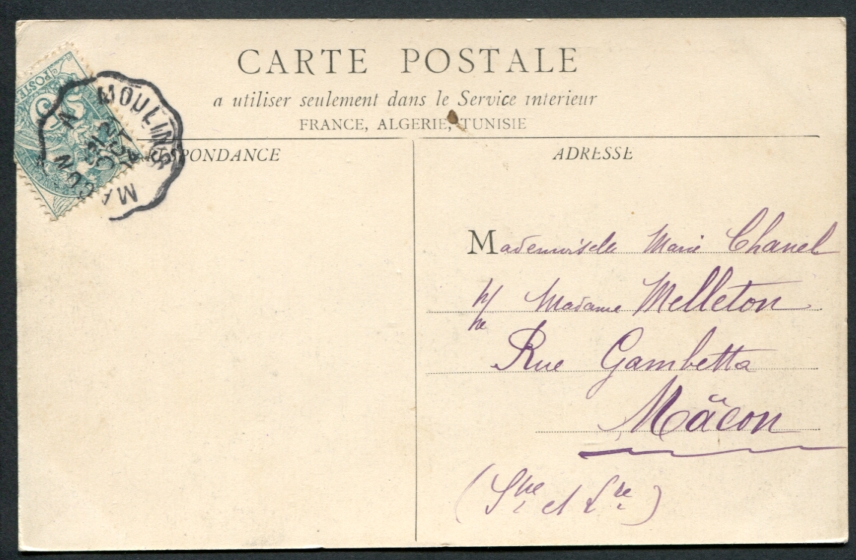 CARTE POSTALE
a utiliser seulement dans le Service interieur
FRANCE, ALGERIE, TUNISIE
POSTES
5
MOULINS
MACON
PONDANCE
ADRESSE
Mademoiselle Marie Chanel
Madame Melleton
Rue Gambetta
Mâcon
(Sne et Lre)